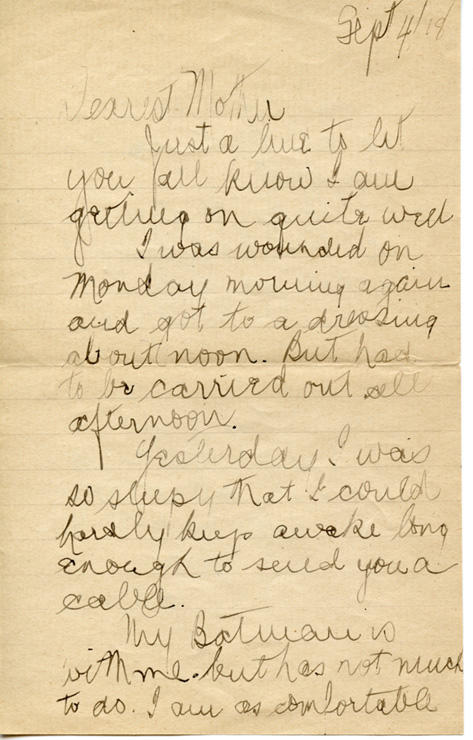 Sept 4/18
Dearest Mother
Just a line to let
you all know I am
getting on quite well
I was wounded on
Monday morning again
and got to a dressing
about noon. But had
to be carried out all
afternoon.
Yesterday I was
so sleepy that I could
hardly keep awake long
enough to send you a
cable.
My Batman is
with me. but has not much
to do. I am as comfortable